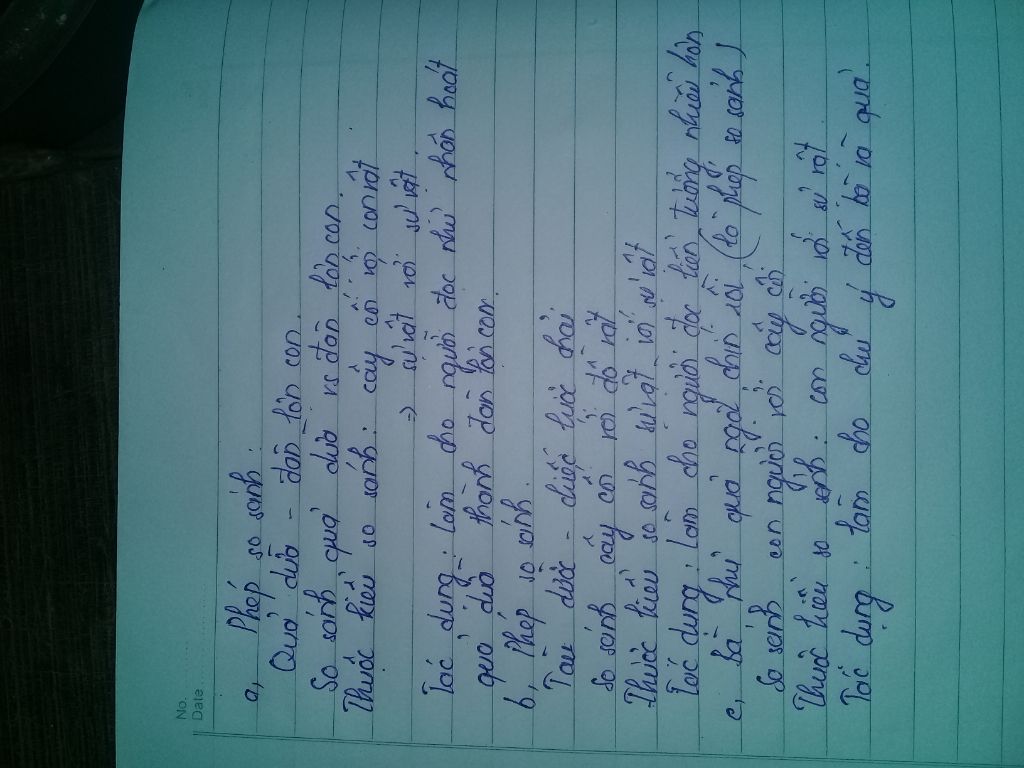 No.
Date
a, Phép so sánh.
Quả dừa - đàn lợn con.
So sánh quả dừa vs đàn lợn con.
Thuộc kiểu so sánh: cây cối với con vật
=> sự vật với sự vật.
Tác dụng: làm cho người đọc như nhân hoát
quả dừa thành đàn lợn con.
b, Phép so sánh.
Tàu dừa - chiếc lược chải
so sánh cây cối với đồ vật
Thuộc kiểu so sánh sự vật với sự vật
Tác dụng: Làm cho người đọc liên tưởng nhiều hơn
c, Bà như quả ngọt chín rồi (là phép so sánh)
So sánh con người với cây cối
Thuộc kiểu so sánh: con người với sự vật
Tác dụng: làm cho chú ý đến bà và quả.